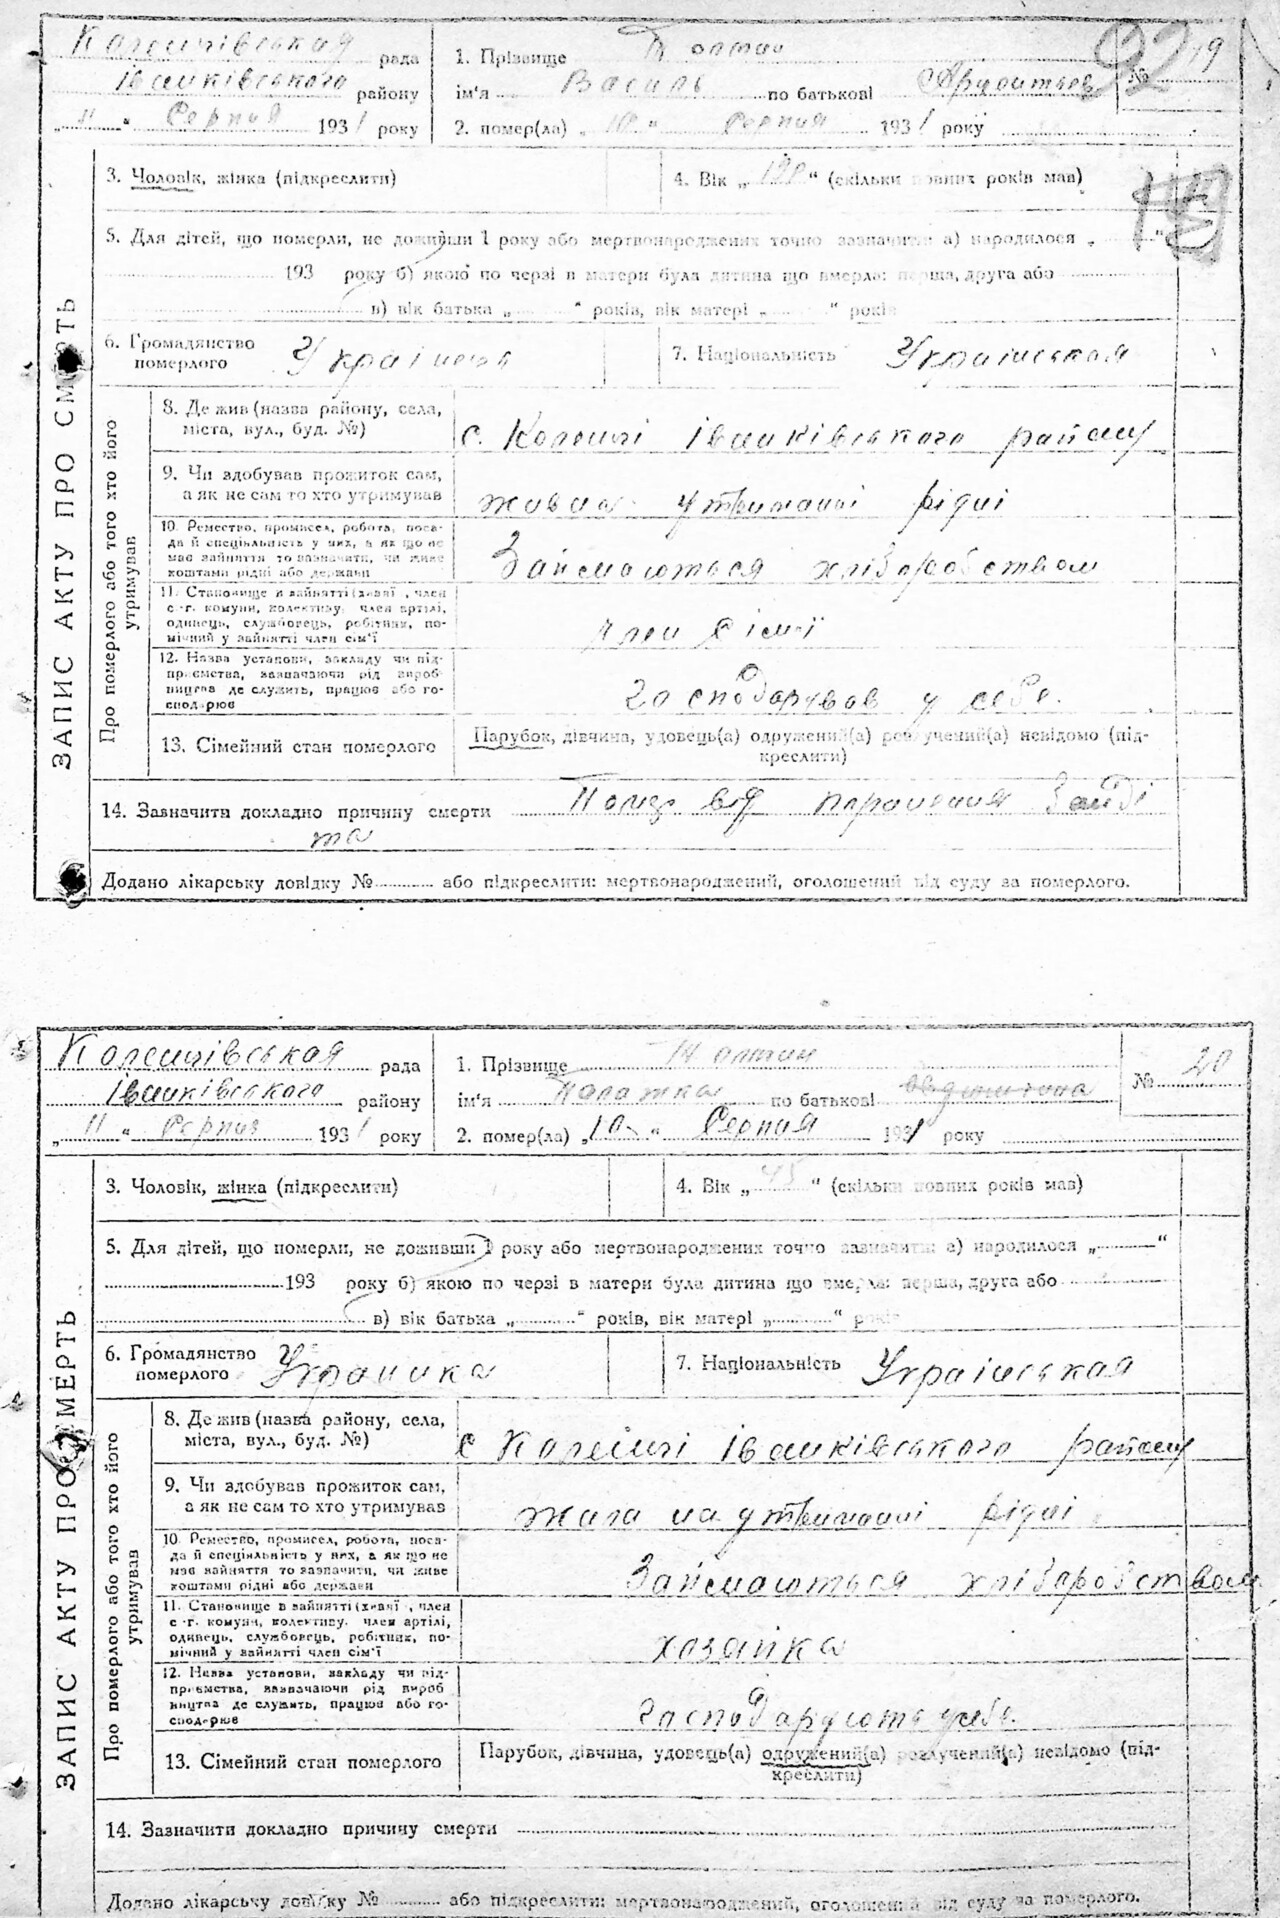 92
Коленцівская рада
Іванківського району
„ 11 “ Серпня 1931 року
1. Прізвище Толтин
ім'я Василь по батькові
№ 19
2. помер(ла) „ 10 “ Серпня 1931 року
ЗАПИС АКТУ ПРО СМЕРТЬ
3. Чоловік, жінка (підкреслити)
4. Вік „ “ (скільки повних років мав)
5. Для дітей, що померли, не доживши 1 року або мертвонароджених точно зазначити: а) народилося „ “
193 року б) якою по черзі в матери була дитина що вмерла: перша, друга або
в) вік батька „ “ років, вік матері „ “ років
6. Громадянство померлого Українець
7. Національність Українськая
Про померлого або того хто його утримував
8. Де жив (назва району, села,
міста, вул., буд. №)
с. Коленці Іванківського району
9. Чи здобував прожиток сам,
а як не сам то хто утримував
жив на утриманні рідні
10. Ремество, промисел, робота, поса-
да й спеціяльність у них, а як що не
має зайняття то зазначити, чи живе
коштами рідні або держави
Займаються хліборобством
11. Становище в зайнятті (хазяї , член
с.-г. комуни, колективу, член артілі,
одинець, службовець, робітник, по-
мічний у зайнятті член сім'ї
член сімї
12. Назва установи, закладу чи під-
приємства, зазначаючи рід вироб-
ництва де служить, працює або го-
сподарює
Господарував у себе.
13. Сімейний стан померлого
Парубок, дівчина, удовець(а) одружений(а) розлучений(а) невідомо (під-
креслити)
14. Зазначити докладно причину смерти Помер від поранення
Додано лікарську довідку № або підкреслити: мертвонароджений, оголошений від суду за померлого.
Коленцівская рада
Іванківського району
„ 11 “ Серпня 1931 року
1. Прізвище Толтин
ім'я Палажка по батькові
№ 20
2. помер(ла) „ 10 “ Серпня 1931 року
ЗАПИС АКТУ ПРО СМЕРТЬ
3. Чоловік, жінка (підкреслити)
4. Вік „ 45 “ (скільки повних років мав)
5. Для дітей, що померли, не доживши 1 року або мертвонароджених точно зазначити: а) народилося „ “
193 року б) якою по черзі в матери була дитина що вмерла: перша, друга або
в) вік батька „ “ років, вік матері „ “ років
6. Громадянство померлого Украинка
7. Національність Українськая
Про померлого або того хто його утримував
8. Де жив (назва району, села,
міста, вул., буд. №)
с Коленці Іванківського району
9. Чи здобував прожиток сам,
а як не сам то хто утримував
жила на утриманні рідні
10. Ремество, промисел, робота, поса-
да й спеціяльність у них, а як що не
має зайняття то зазначити, чи живе
коштами рідні або держави
Займаються хліборобством
11. Становище в зайнятті (хазяї , член
с.-г. комуни, колективу, член артілі,
одинець, службовець, робітник, по-
мічний у зайнятті член сім'ї
хозяйка
12. Назва установи, закладу чи під-
приємства, зазначаючи рід вироб-
ництва де служить, працює або го-
сподарює
господарують у себе.
13. Сімейний стан померлого
Парубок, дівчина, удовець(а) одружений(а) розлучений(а) невідомо (під-
креслити)
14. Зазначити докладно причину смерти
Додано лікарську довідку № або підкреслити: мертвонароджений, оголошений від суду за померлого.